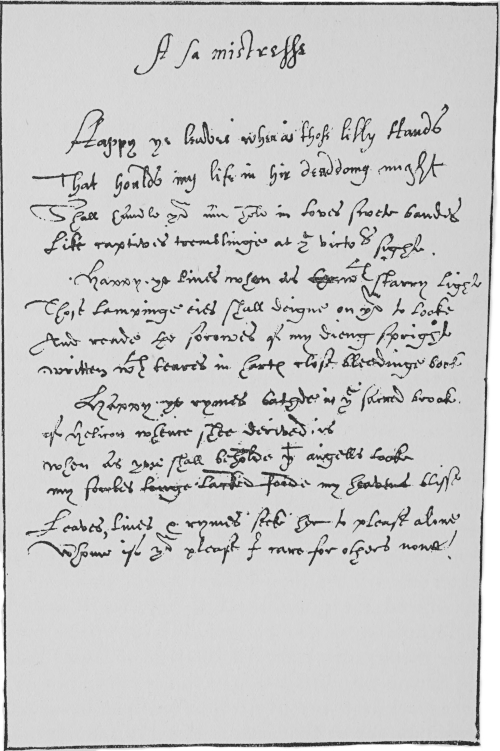 A sa mistresse
Happy ye leaves when as those lilly hands
That houlds my life in hir deaddoing might
Shall handle you and hold in loves swete bandes
Like captives tremblinge at ye victors sight.
Happy ye lines when as wth starry light
Those lampinge eies shall deigne on you to looke
And reade the sorowes of my dieng spright
written wth teares in harts close bleedinge booke
Happy ye rymes bathde in ye sacred brook
of Helicon whence shee derived is
when as you shall beholde yt angells looke
my soules longe lacked foode my heavens blisse
Leaves, lines & rymes seeke her to please alone
Whome if you please I care for others none!